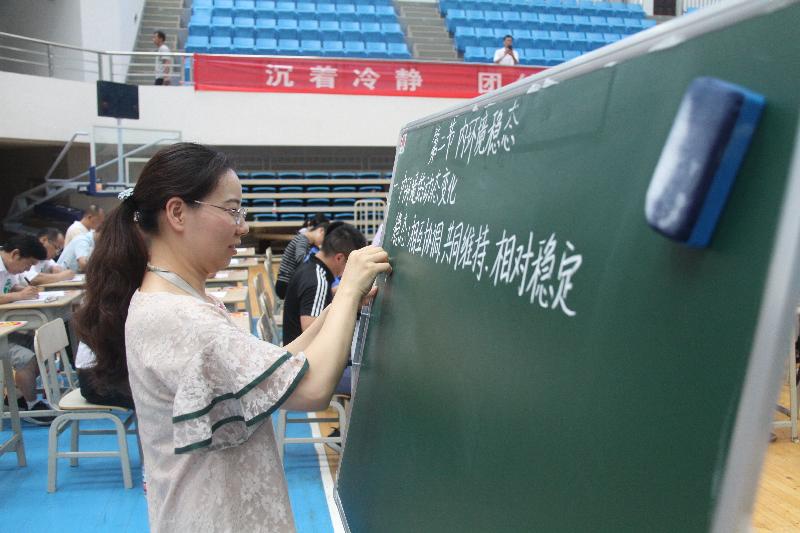 沉着冷静 团
第三节 内环境稳态
一、内环境的动态变化
稳态：相互协调、共同维持、相对稳定